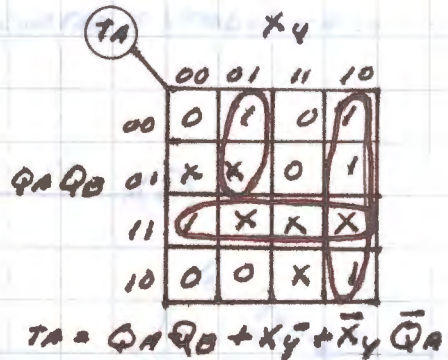 TA
Xy
00 01 11 10
00 0 1 0 1
QA QB 01 X X 0 1
11 1 X X X
10 0 0 X 1
TA = QA QB + Xȳ + X̄y Q̄A